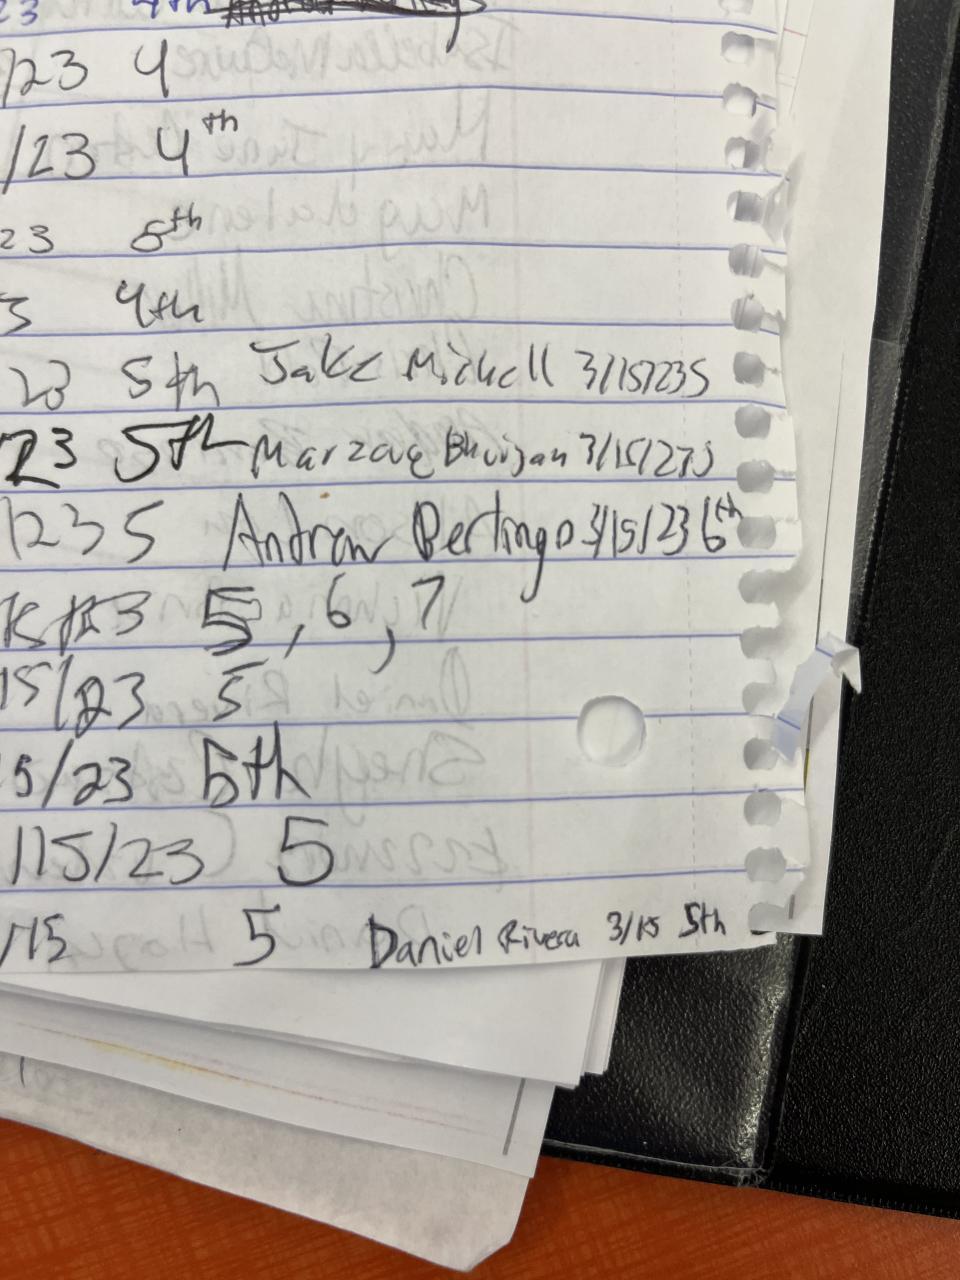 23 4th
/23 4
/23 4th
23 8th
3 4th
23 5th Jake Mickell 3/15/235
23 5th Marzoug Bhuiyan 3/15/235
/235 Andrew Pertingo 3/15/23 6th
15/23 5, 6, 7
15/23 5
5/23 5th
/15/23 5
/15 5 Daniel Rivera 3/15 5th